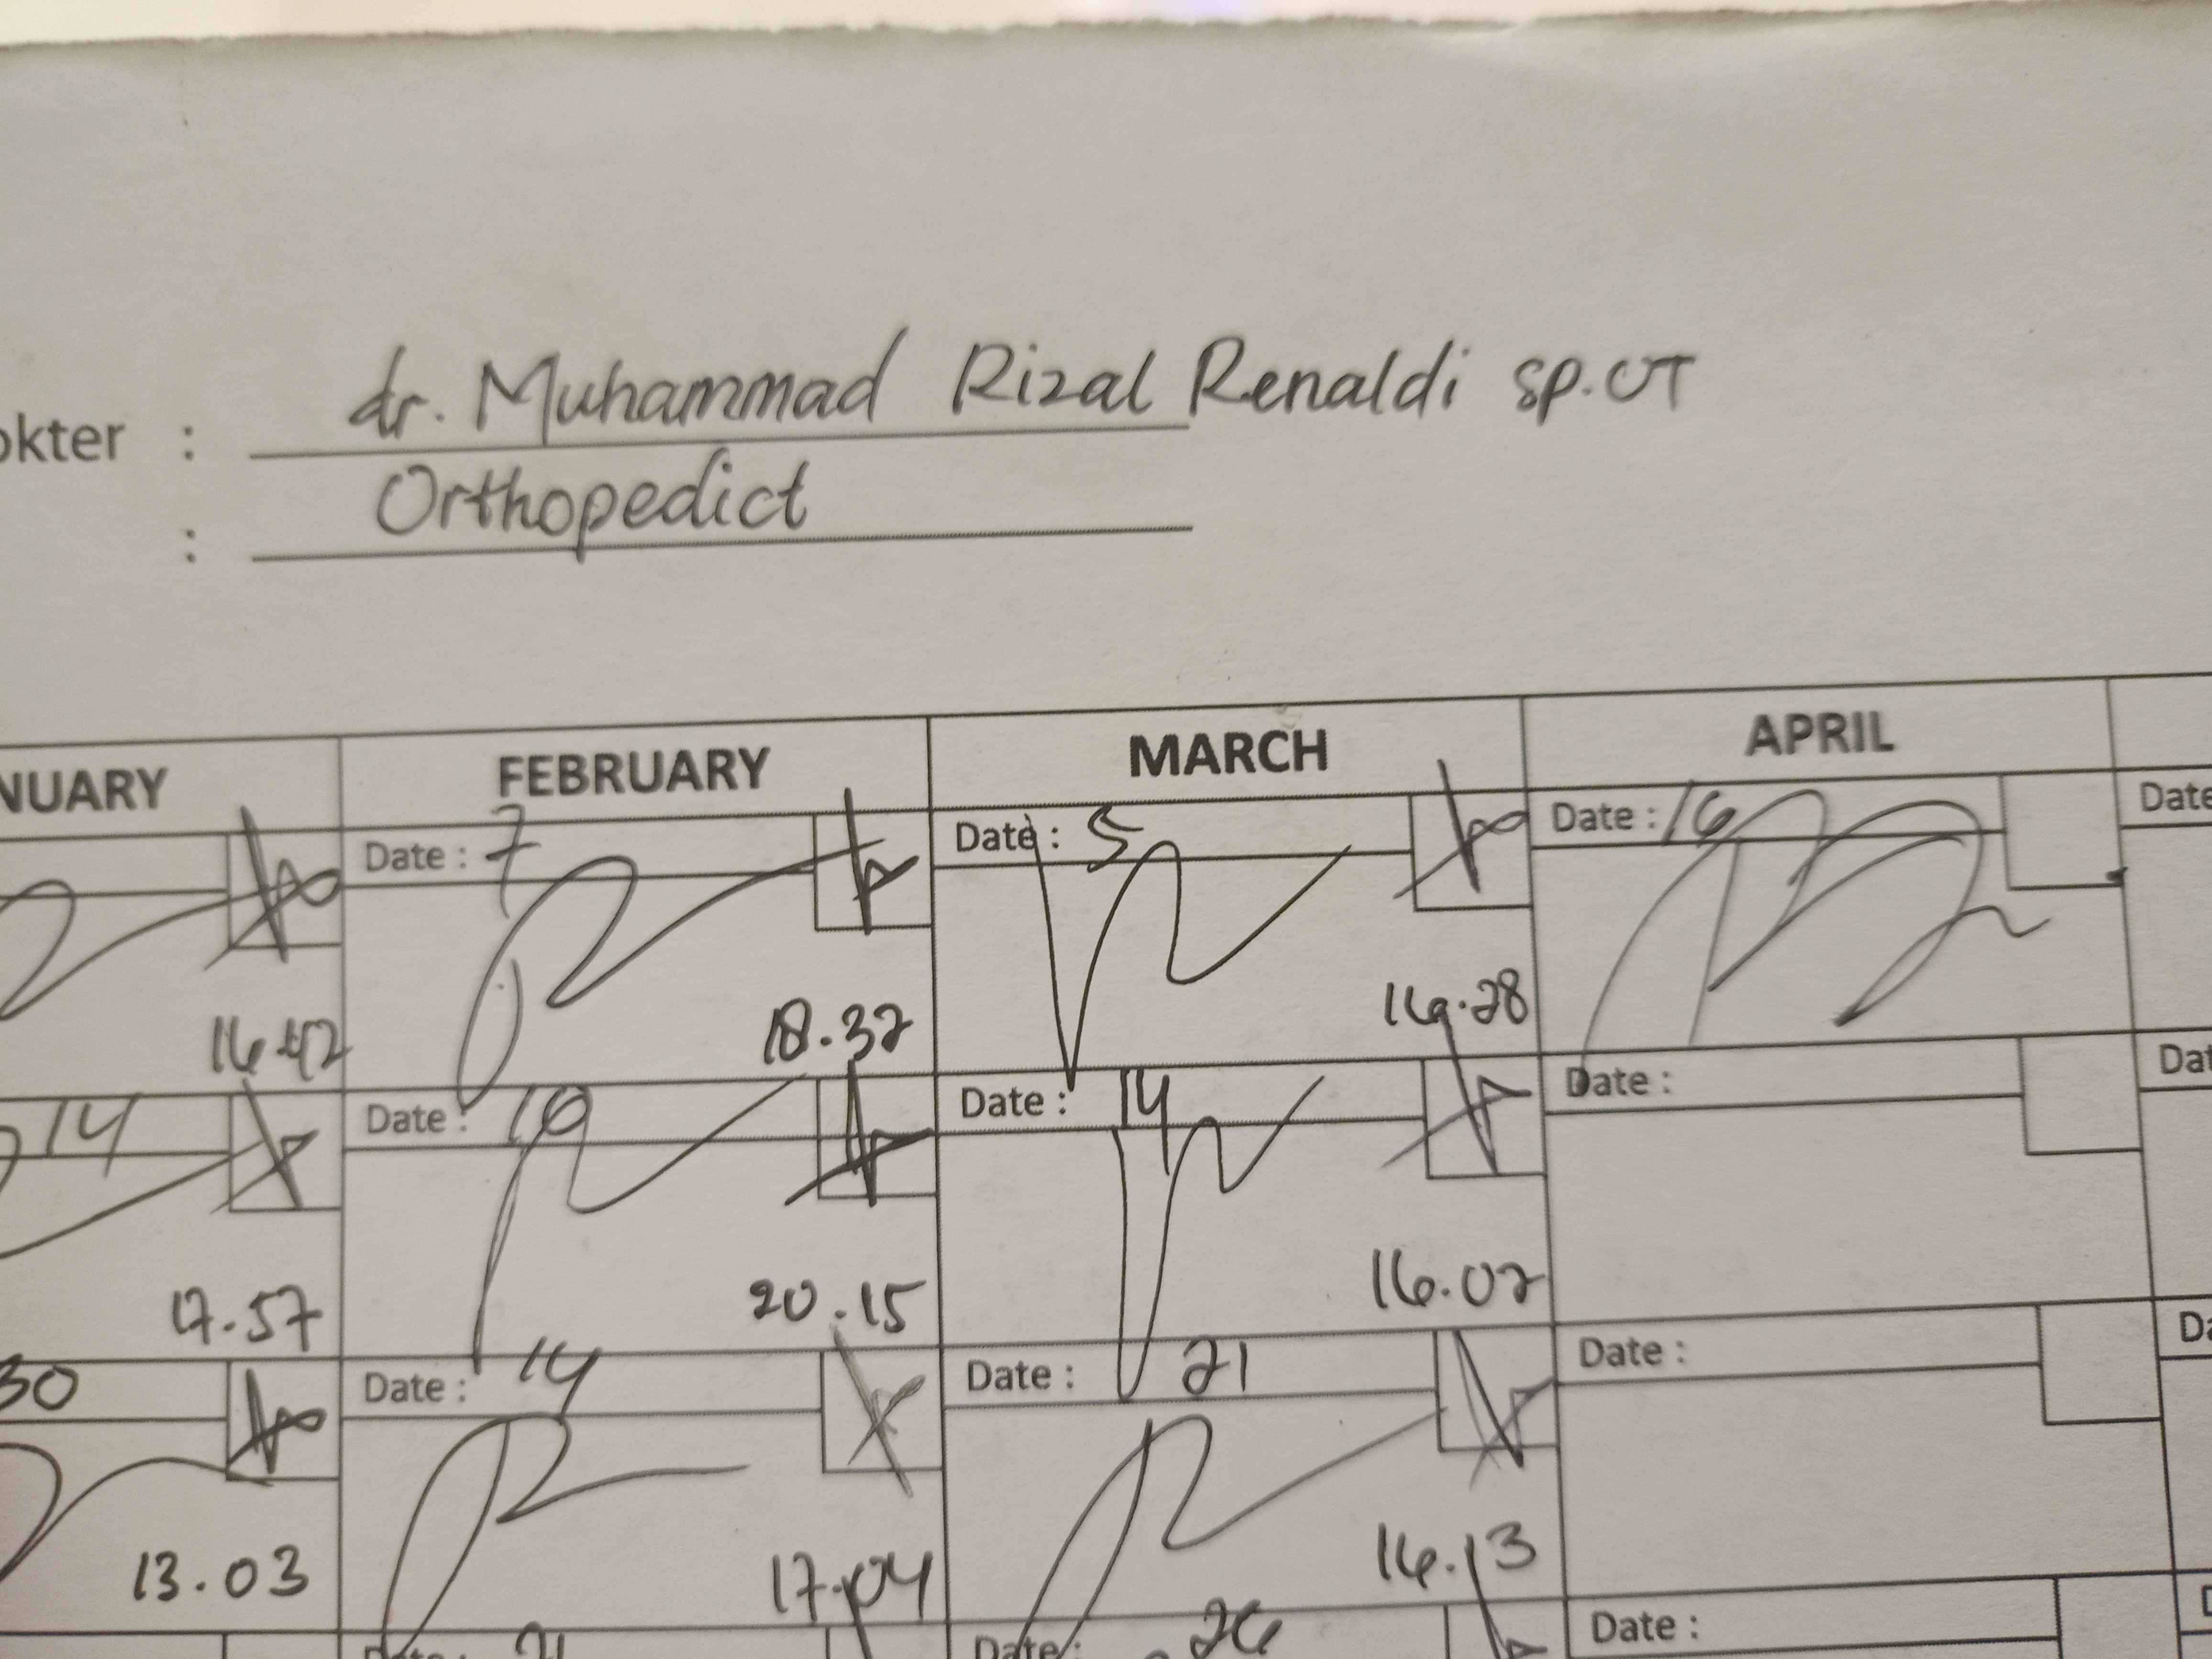 okter : dr. Muhammad Rizal Renaldi sp.OT
: Orthopedict
NUARY FEBRUARY MARCH APRIL
Date : 7 Date : 5 Date : 16 Date
16.42 18.32 16.28
14 Date : 10 Date : 14 Date : Dat
17.57 20.15 16.02
30 Date : 14 Date : 21 Date : Da
13.03 17.04 16.13
Date : 21 Date : 26 Date : D